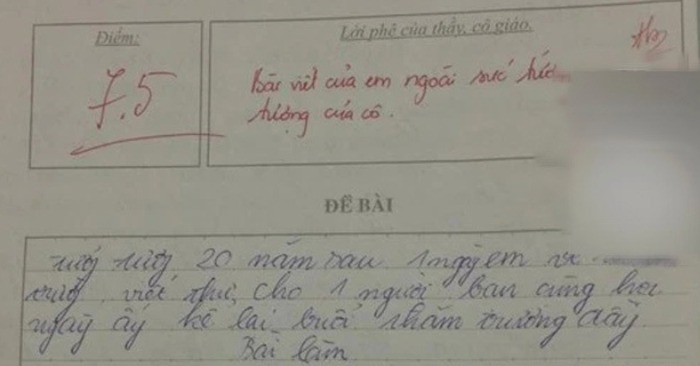 Điểm:
Lời phê của thầy, cô giáo.
7.5
Bài viết của em ngoài sức
tưởng của cô.
ĐỀ BÀI
20 năm sau 1 ngày em
viết thư cho 1 người bạn cùng học
ngày ấy kể lại buổi thăm trường đầy
Bài làm